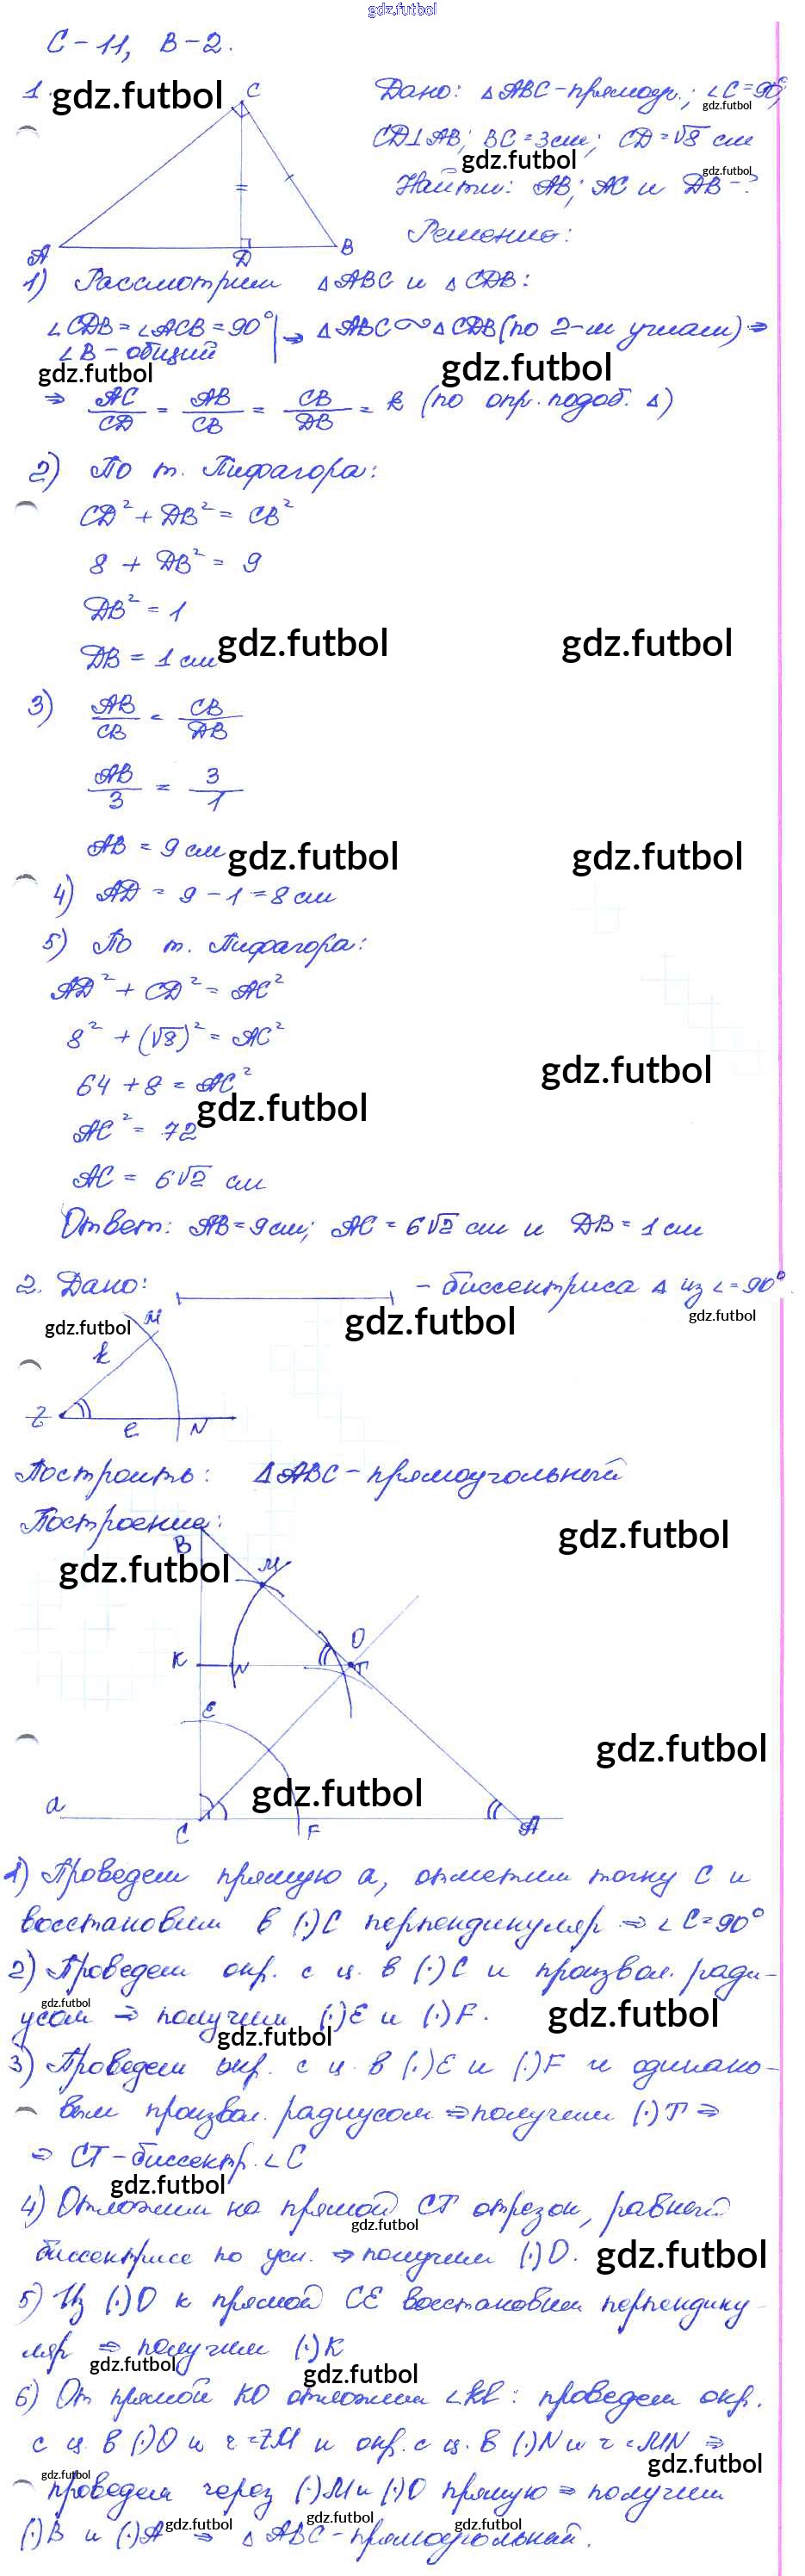 gdz.futbol
С-11, В-2.
1. gdz.futbol C Дано: △ABC-прямоуг.; ∠C=90°;
gdz.futbol
CD⊥AB; BC=3см; CD=√8 см
gdz.futbol gdz.futbol
Найти: AB; AC и DB-?
Решение:
A D B
1) Рассмотрим △ABC и △CDB:
∠CDB=∠ACB=90° | ⇒ △ABC∾△CDB (по 2-м углам) ⇒
∠B-общий
gdz.futbol gdz.futbol
⇒ AC/CD = AB/CB = CB/DB = k (по опр. подоб. △)
2) По т. Пифагора:
CD²+DB²=CB²
8 + DB² = 9
DB² = 1
DB = 1 см gdz.futbol gdz.futbol
3) AB/CB = CB/DB
AB/3 = 3/1
AB = 9 см gdz.futbol gdz.futbol
4) AD = 9-1=8 см
5) По т. Пифагора:
AD²+CD²=AC²
8²+(√8)²=AC²
gdz.futbol
64+8=AC²
gdz.futbol
AC²=72
AC = 6√2 см
Ответ: AB=9см; AC=6√2 см и DB=1см
2. Дано: - биссектриса △ из ∠=90°
gdz.futbol M gdz.futbol gdz.futbol
k
Z ℓ N
Построить: △ABC-прямоугольный
Построение:
gdz.futbol
B
gdz.futbol M
O
K N T
E
gdz.futbol
a gdz.futbol
C F A
1) Проведем прямую a, отметим точку C и
восстановим в (·)C перпендикуляр ⇒ ∠C=90°
2) Проведем окр. с ц. в (·)C и произвол. ради-
gdz.futbol gdz.futbol
усом ⇒ получим (·)E и (·)F.
gdz.futbol
3) Проведем окр. с ц. в (·)E и (·)F и одинако-
вым произвол. радиусом ⇒ получим (·)T ⇒
⇒ CT-биссектр. ∠C
gdz.futbol
4) Отложим на прямой CT отрезок, равный
gdz.futbol
биссектрисе по усл. ⇒ получим (·)O. gdz.futbol
5) Из (·)O к прямой CE восстановим перпендику-
ляр ⇒ получим (·)K
gdz.futbol gdz.futbol
6) От прямой KO отложим ∠kℓ: проведем окр.
с ц. в (·)O и r=ZM и окр. с ц. в (·)N и r=MN ⇒
gdz.futbol gdz.futbol
проведем через (·)M и (·)O прямую ⇒ получим
(·)B и (·)A gdz.futbol ⇒ △ABC-прямоугольный.
gdz.futbol gdz.futbol